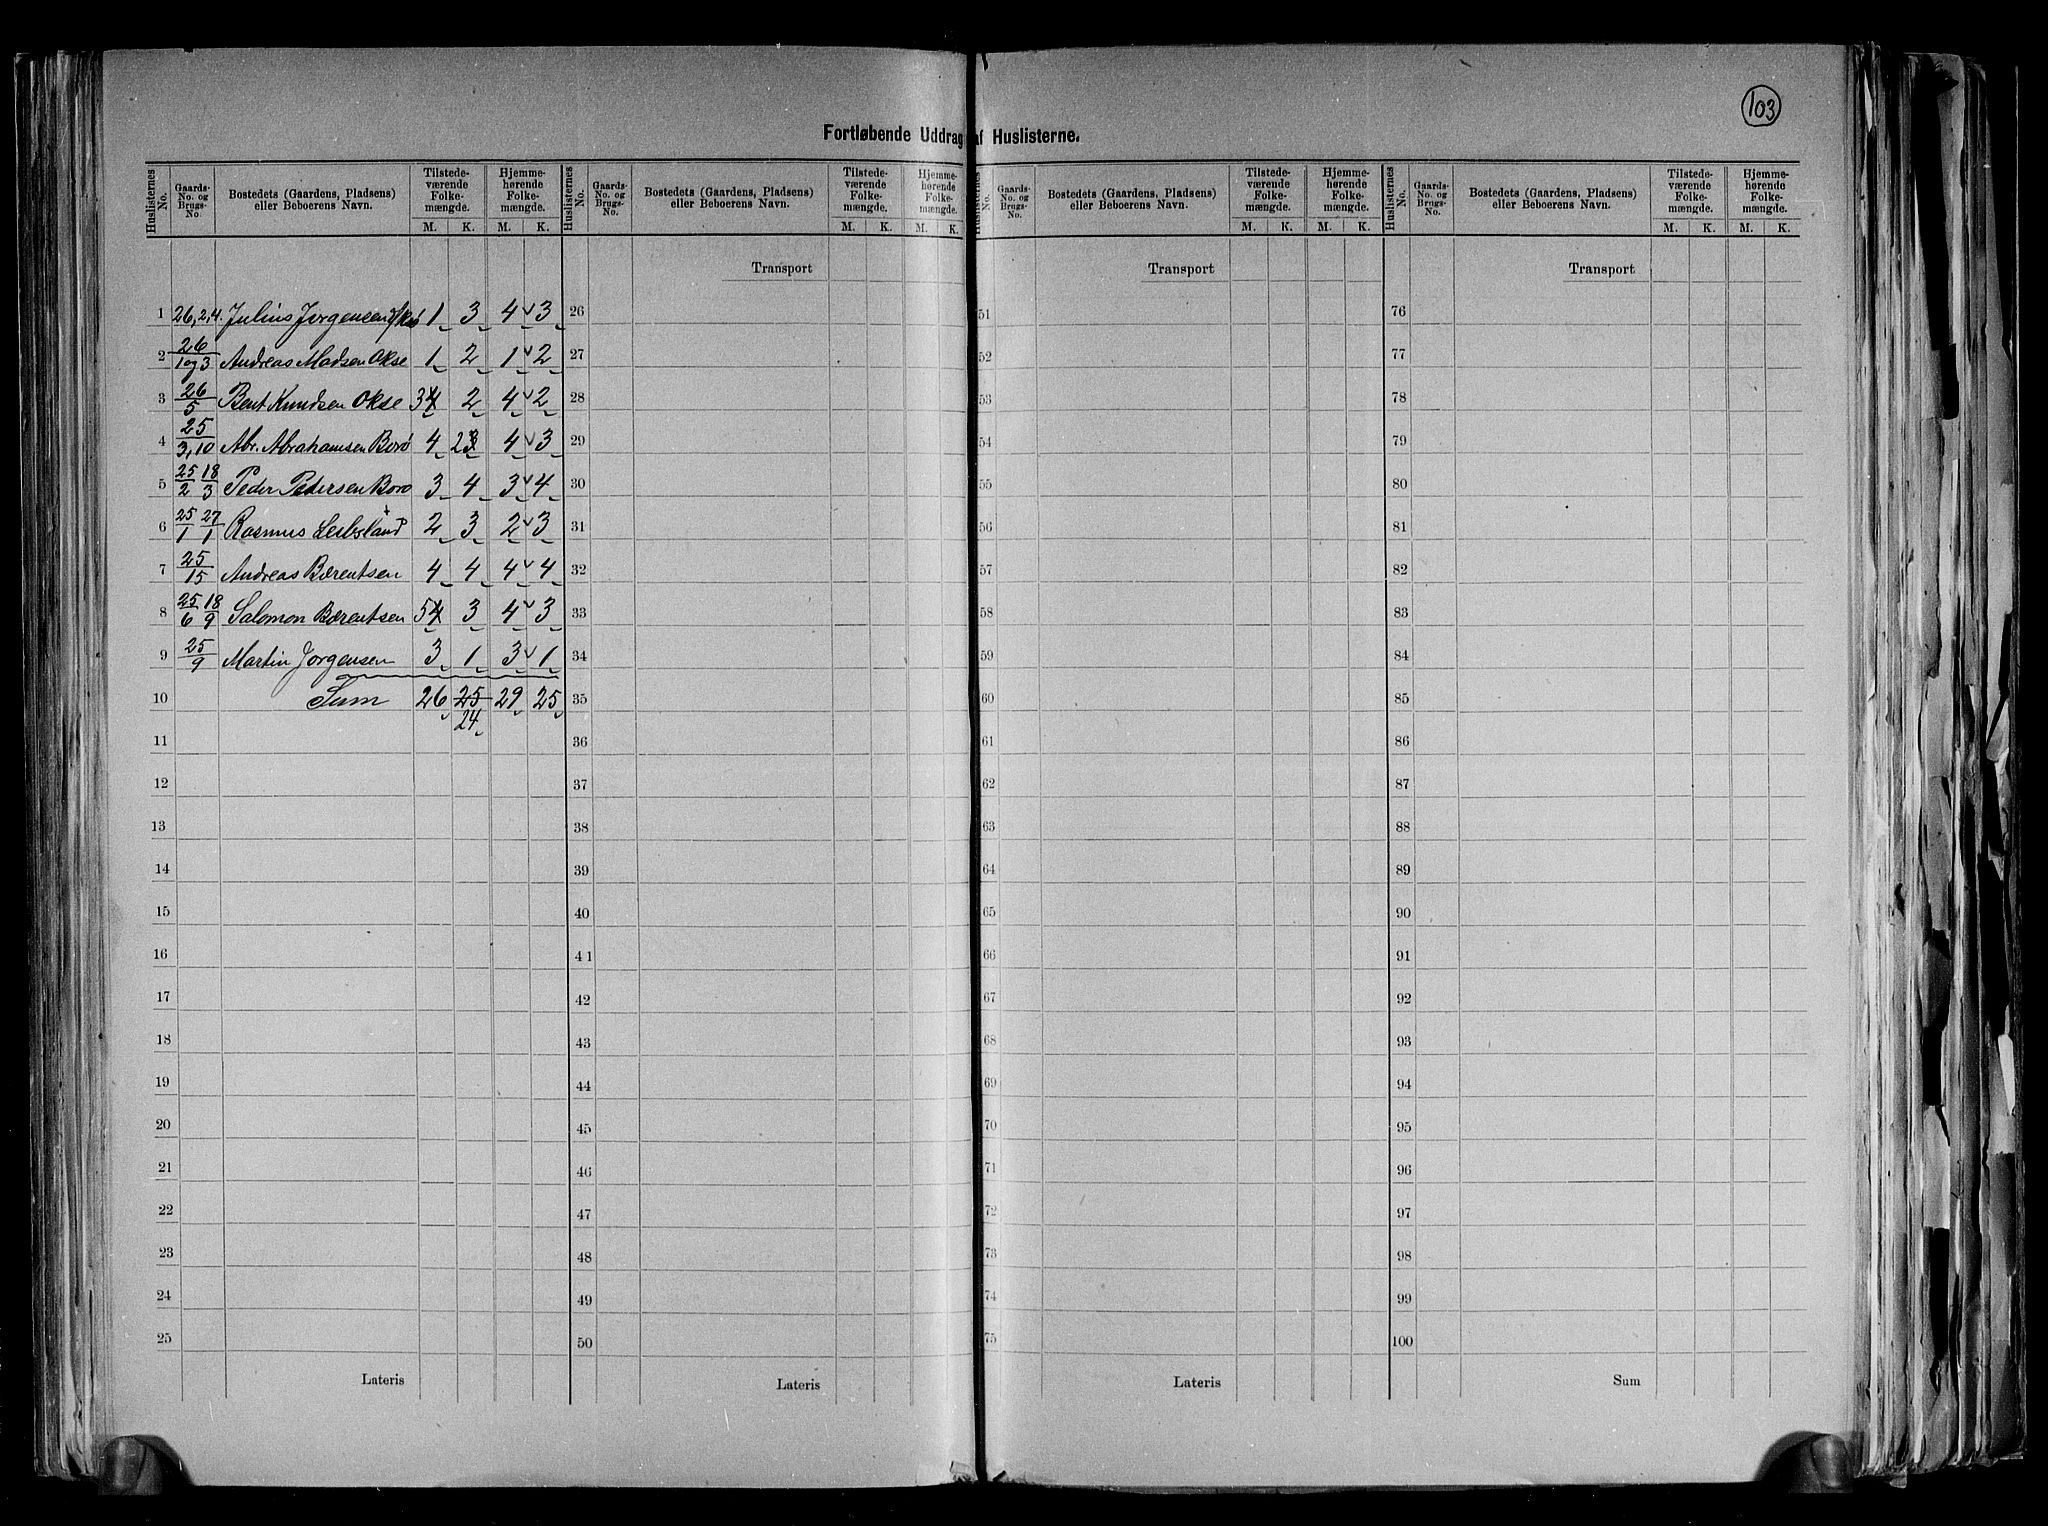 103
Fortløbende Uddrag af Huslisterne.
Huslisternes No. | Gaards-No. og Brugs-No. | Bostedets (Gaardens, Pladsens) eller Beboerens Navn. | Tilstedeværende Folkemængde. M. K. | Hjemmehørende Folkemængde. M. K.
Huslisternes No. | Gaards-No. og Brugs-No. | Bostedets (Gaardens, Pladsens) eller Beboerens Navn. | Tilstedeværende Folkemængde. M. K. | Hjemmehørende Folkemængde. M. K.
Huslisternes No. | Gaards-No. og Brugs-No. | Bostedets (Gaardens, Pladsens) eller Beboerens Navn. | Tilstedeværende Folkemængde. M. K. | Hjemmehørende Folkemængde. M. K.
Huslisternes No. | Gaards-No. og Brugs-No. | Bostedets (Gaardens, Pladsens) eller Beboerens Navn. | Tilstedeværende Folkemængde. M. K. | Hjemmehørende Folkemængde. M. K.
Transport Transport Transport
1 26,2,4. Julius Jørgensen 1 3 4 3 26 51 76
2 26/1og3 Andreas Madsen Okse 1 2 1 2 27 52 77
3 26/5 Bent Knudsen Okse 3 4 2 4 2 28 53 78
4 25/3,10 Abr. Abrahamsen Borø 4 2 3 4 3 29 54 79
5 25/2 18/3 Peder Pedersen Borø 3 4 3 4 30 55 80
6 25/1 27/1 Rasmus 2 3 2 3 31 56 81
7 25/15 Andreas Bærentsen 4 4 4 4 32 57 82
8 25/6 18/9 Salomon Bærentsen 5 4 3 4 3 33 58 83
9 25/9 Martin Jørgensen 3 1 3 1 34 59 84
10 Sum 26 25/24 29 25 35 60 85
11 36 61 86
12 37 62 87
13 38 63 88
14 39 64 89
15 40 65 90
16 41 66 91
17 42 67 92
18 43 68 93
19 44 69 94
20 45 70 95
21 46 71 96
22 47 72 97
23 48 73 98
24 49 74 99
25 50 75 100
Lateris Lateris Lateris Sum